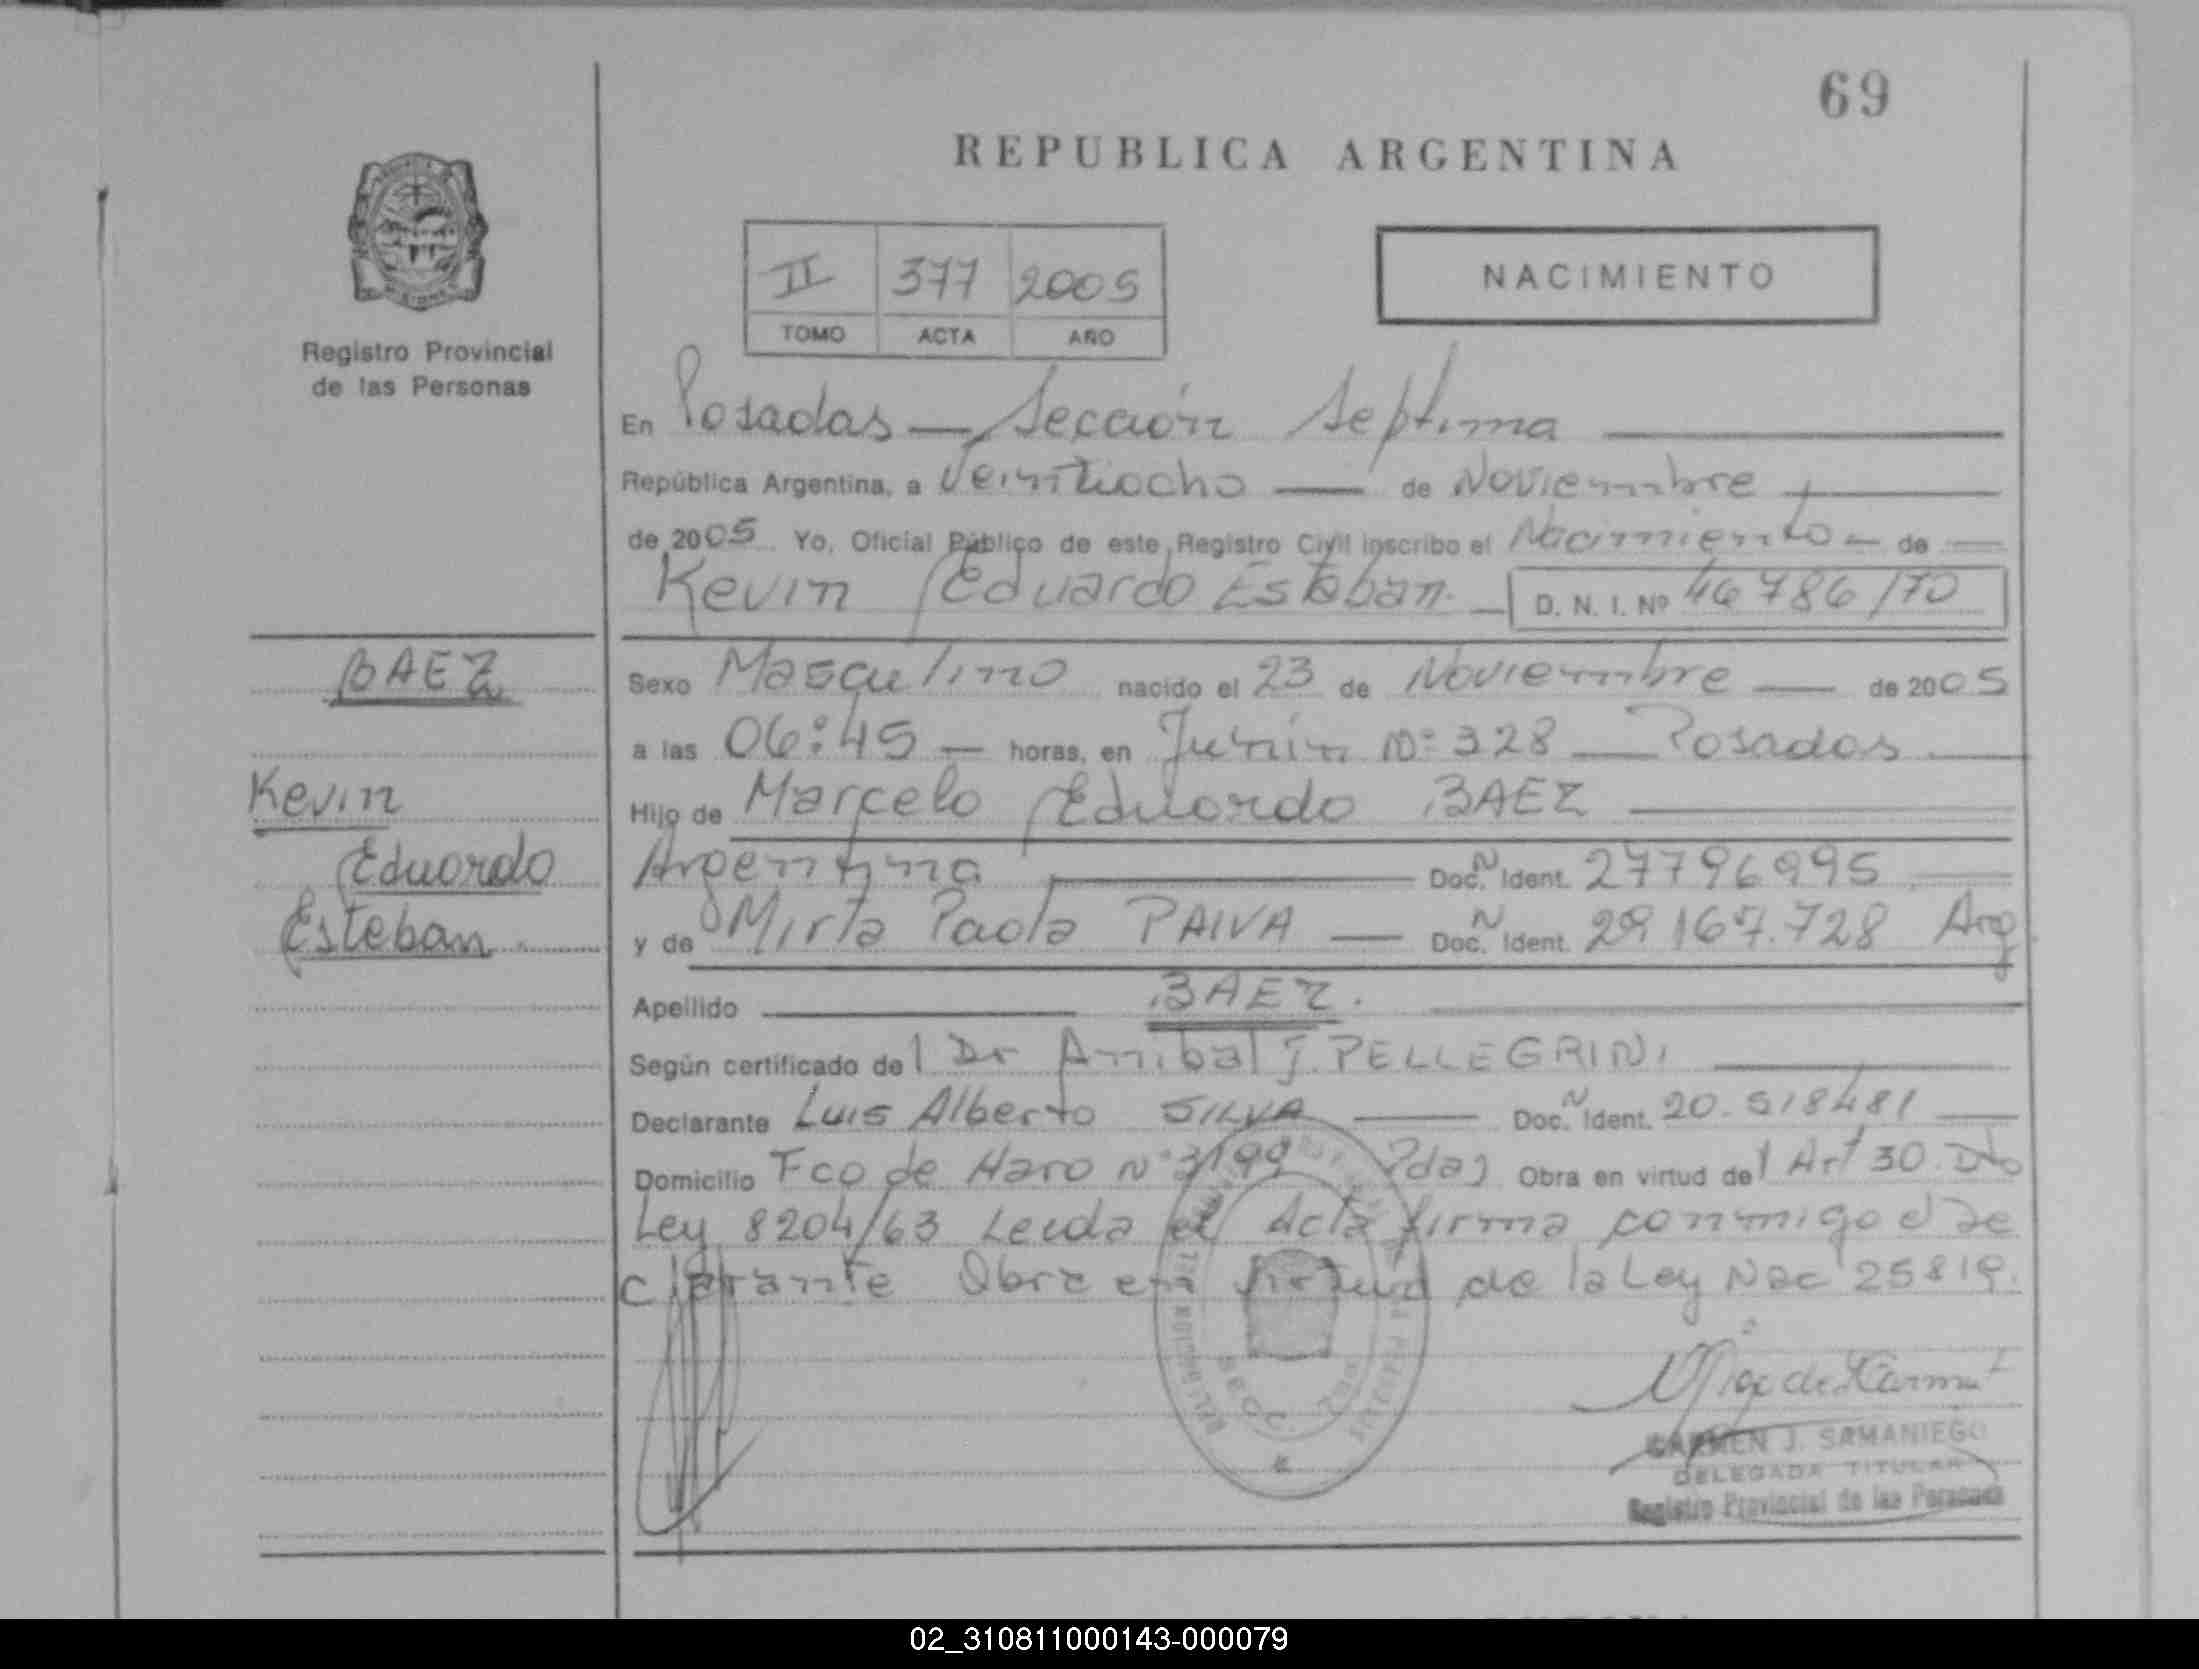 69
REPUBLICA ARGENTINA
II 377 2005
TOMO ACTA AÑO
NACIMIENTO
Registro Provincial
de las Personas
En Posadas — Sección Septima
República Argentina, a Veintiocho — de Noviembre
de 2005 Yo, Oficial Público de este Registro Civil inscribo el Nacimiento — de
Kevin Eduardo Esteban — D. N. I. Nº 46 786 170
BAEZ
Kevin
Eduardo
Esteban
Sexo Masculino nacido el 23 de Noviembre — de 2005
a las 06:45 — horas, en Junín Nº 328 — Posadas
Hijo de Marcelo Eduardo BAEZ
Argentina Doc. N Ident. 27796995
y de Mirta Paola PAIVA — Doc. N Ident. 29 167.728 Arg
Apellido BAEZ.
Según certificado del Dr Anibal J. PELLEGRINI
Declarante Luis Alberto SILVA Doc. N Ident. 20.518481
Domicilio Fco de Haro Nº 3199 Pdas Obra en virtud del Art 30. Dto
Ley 8204/63 Leida el Acta firma conmigo el de
clarante Obra en virtud de la Ley Nac 25819.
CARMEN J. SAMANIEGO
DELEGADA TITULAR
Registro Provincial de las Personas
02_310811000143-000079